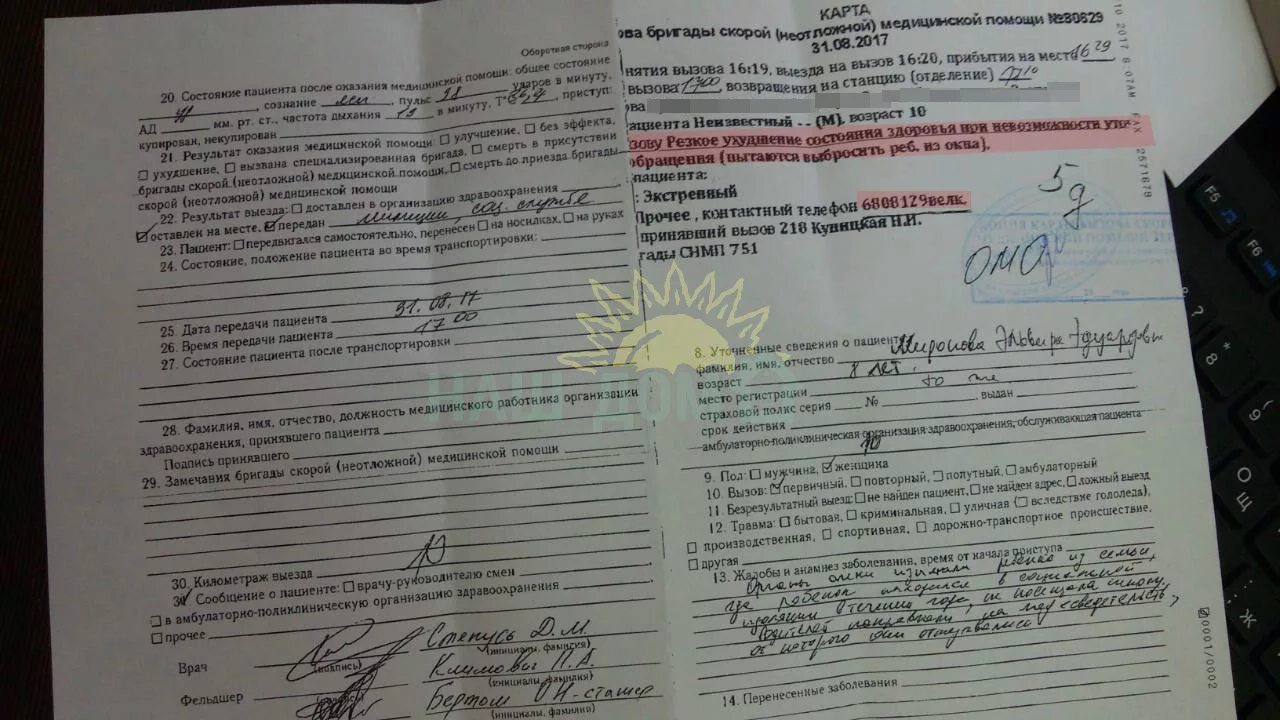 Оборотная сторона
20. Состояние пациента после оказания медицинской помощи: общее состояние
сознание ясн, пульс 98 ударов в минуту,
АД мм. рт. ст., частота дыхания 19 в минуту, T° 36,9, приступ:
купирован, некупирован
21. Результат оказания медицинской помощи □ улучшение, □ без эффекта,
□ ухудшение, □ вызвана специализированная бригада, □ смерть в присутствии
бригады скорой (неотложной) медицинской помощи, □ смерть до приезда бригады
скорой (неотложной) медицинской помощи
22. Результат выезда: □ доставлен в организацию здравоохранения
☑ оставлен на месте, ☑ передан милиции, соц. службе
23. Пациент: □ передвигался самостоятельно, перенесен □ на носилках, □ на руках
24. Состояние, положение пациента во время транспортировки:
25. Дата передачи пациента 31.08.17
26. Время передачи пациента 17 00
27. Состояние пациента после транспортировки
28. Фамилия, имя, отчество, должность медицинского работника организации
здравоохранения, принявшего пациента
Подпись принявшего
29. Замечания бригады скорой (неотложной) медицинской помощи
30. Километраж выезда
31 Сообщение о пациенте: □ врачу-руководителю смен
□ в амбулаторно-поликлиническую организацию здравоохранения
□ прочее
Врач Степусь Д.М.
(подпись) (инициалы, фамилия)
Фельдшер Климович П.А.
(инициалы, фамилия)
(инициалы, фамилия)
КАРТА
ова бригады скорой (неотложной) медицинской помощи №80829
31.08.2017
нятия вызова 16:19, выезда на вызов 16:20, прибытия на место 16 29
вызова 17 00, возвращения на станцию (отделение) 17 10
ова
ациента Неизвестный - - (М), возраст 10
зову Резкое ухудшение состояния здоровья при невозможности уто
обращения (пытаются выбросить реб. из окна),
пациента:
: Экстренный
Прочее , контактный телефон 6808129велк.
принявший вызов 218 Куницкая Н.И.
гады СНМП 751
5 д
ОМО
8. Уточненные сведения о пациент
фамилия, имя, отчество Миронова Эльвира Эдуардовн
возраст 8 лет.
место регистрации то же
страховой полис серия № выдан
срок действия
амбулаторно-поликлиническая организация здравоохранения, обслуживающая пациента
10
9. Пол: □ мужчина, ☑ женщина
10. Вызов: ☑ первичный, □ повторный, □ попутный, □ амбулаторный
11. Безрезультатный выезд: □ не найден пациент, □ не найден адрес, □ ложный выезд
12. Травма: □ бытовая, □ криминальная, □ уличная (□ вследствие гололеда),
□ производственная, □ спортивная, □ дорожно-транспортное происшествие,
□ другая
13. Жалобы и анамнез заболевания, время от начала приступа
Органы опеки изымали ребенка из семьи,
где ребенок находился в социальной
изоляции в течении года, не посещала школу,
от которого они отказывались
14. Перенесенные заболевания
10 2017 8:07AM FAX
2571678
0001/0002
НАШ ДОМ
F5
F6
?
8 *
9 (
О
Щ
Ж